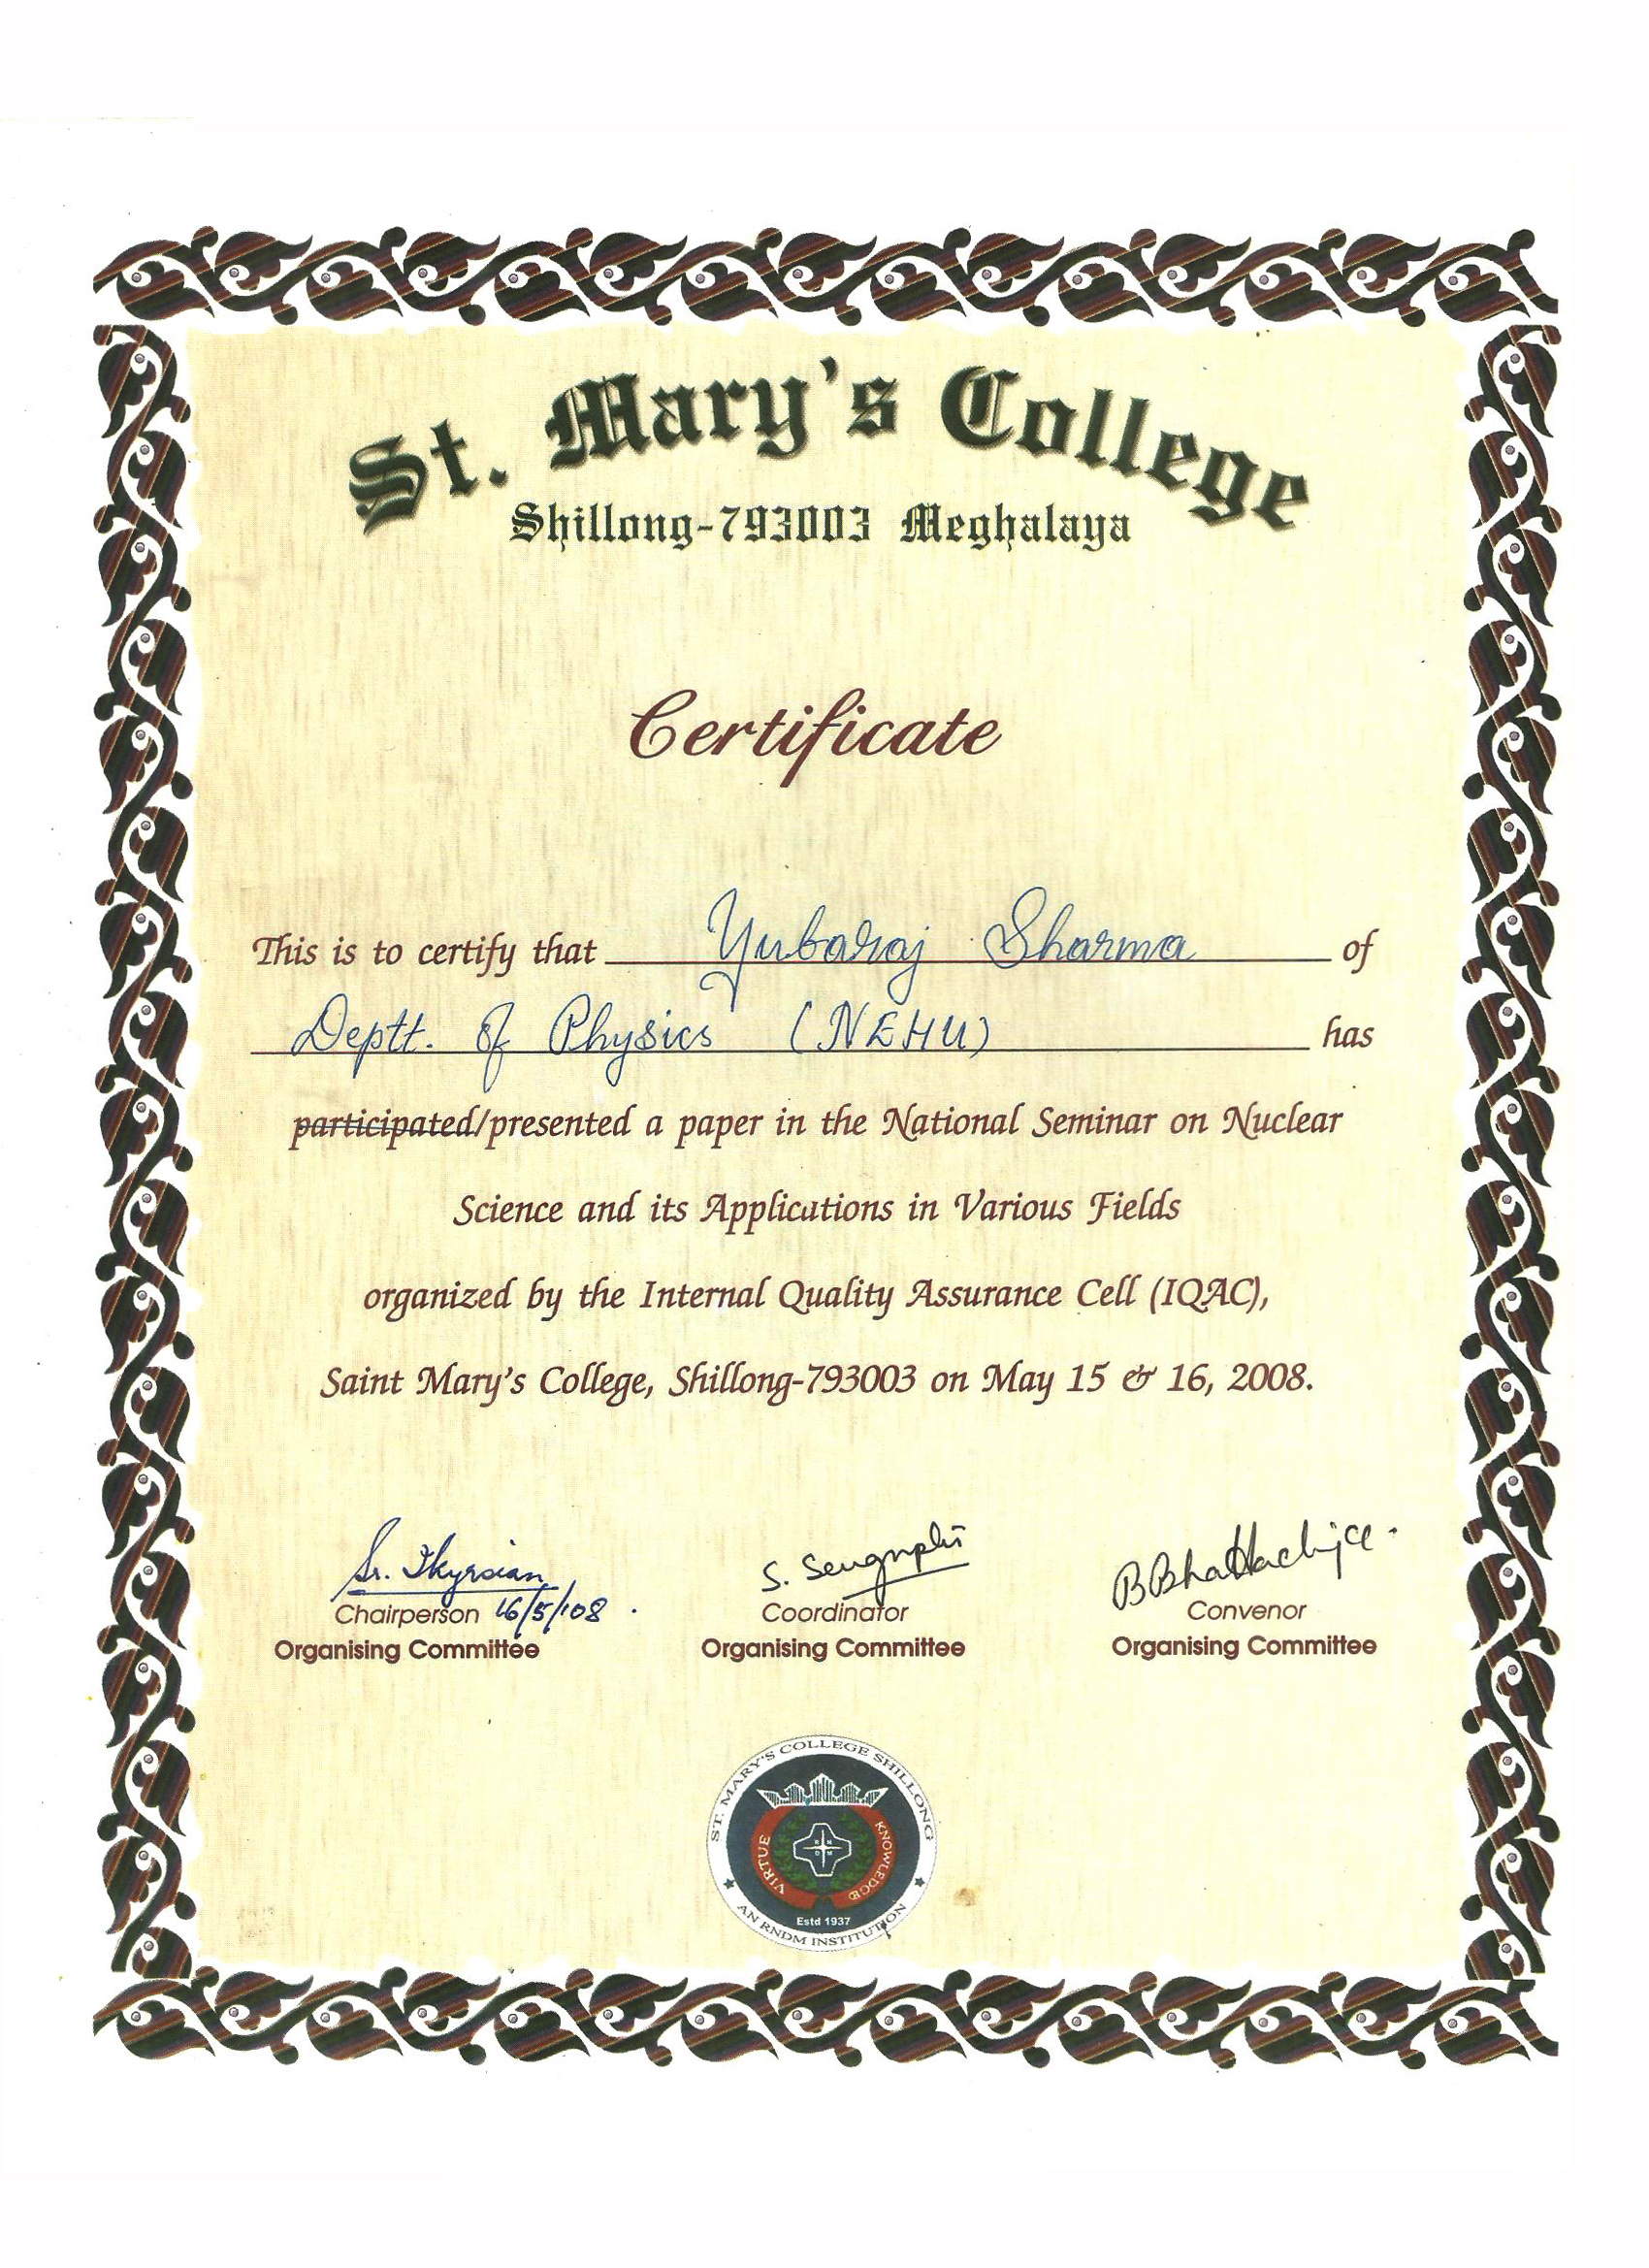 St. Mary's College
Shillong-793003 Meghalaya
Certificate
This is to certify that Yubaraj Sharma of
Deptt. of Physics (NEHU) has
participated/presented a paper in the National Seminar on Nuclear
Science and its Applications in Various Fields
organized by the Internal Quality Assurance Cell (IQAC),
Saint Mary's College, Shillong-793003 on May 15 & 16, 2008.
Sr. S. Sengupta B Bhattacharjee
Chairperson 16/5/08. Coordinator Convenor
Organising Committee Organising Committee Organising Committee
ST. MARY'S COLLEGE SHILLONG
VIRTUE KNOWLEDGE
R N
D M
Estd 1937
AN RNDM INSTITUTION